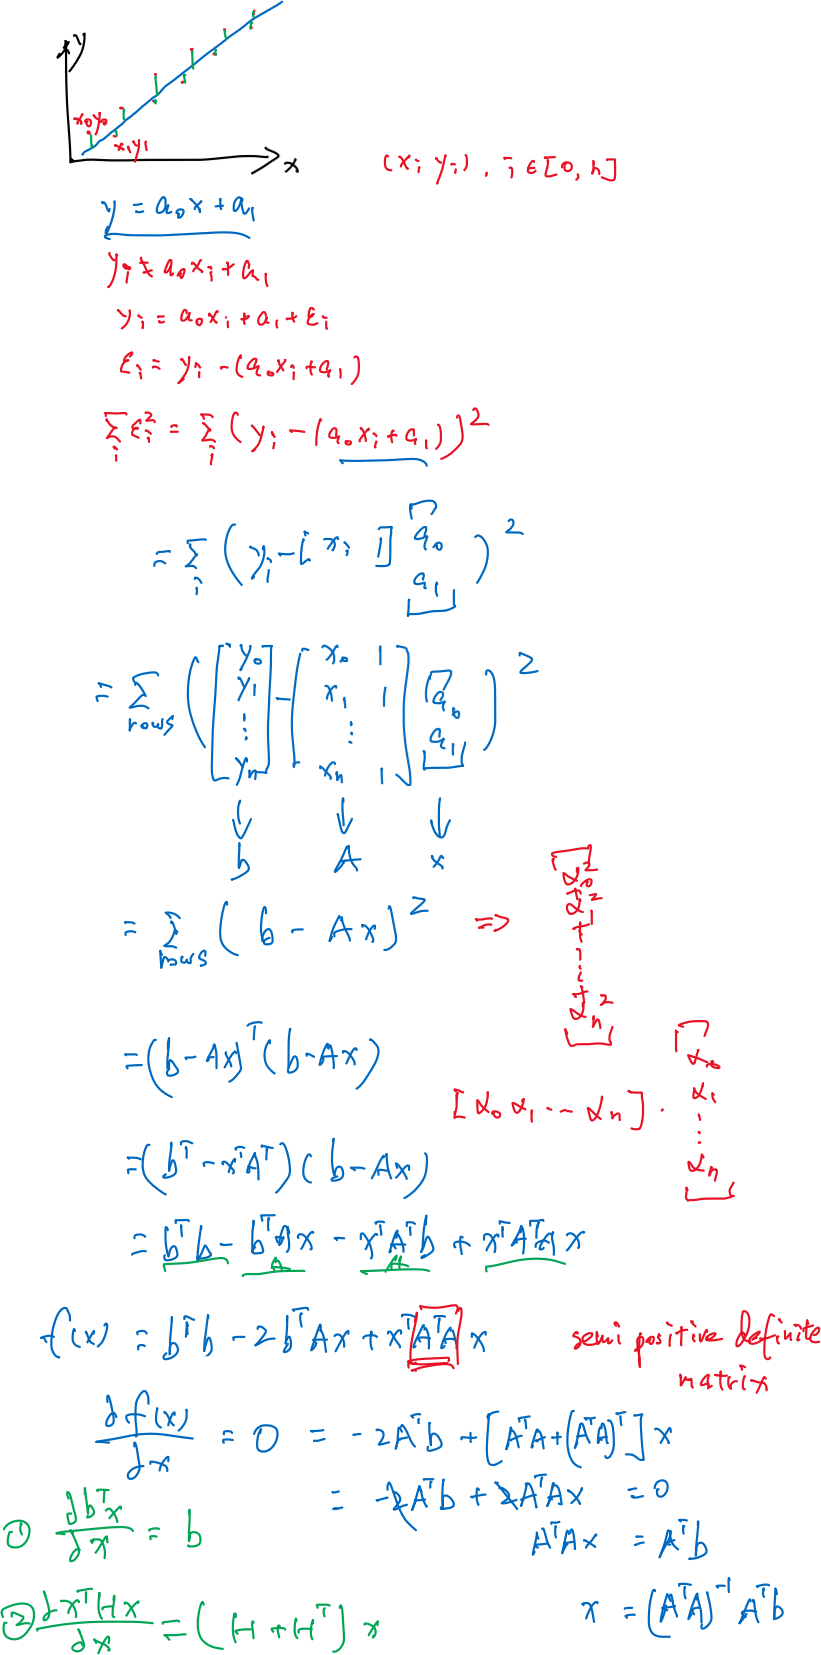 y
x₀y₀
x₁y₁
x
(xᵢ yᵢ), i ∈ [0, n]
y = a₀x + a₁
yᵢ ≠ a₀xᵢ + a₁
yᵢ = a₀xᵢ + a₁ + εᵢ
εᵢ = yᵢ - (a₀xᵢ + a₁)
∑ᵢ εᵢ² = ∑ᵢ (yᵢ - (a₀xᵢ + a₁))²
= ∑ᵢ (yᵢ - [xᵢ 1] [a₀ a₁])²
= ∑rows ([y₀ y₁ ⋮ yₙ] - [x₀ 1 x₁ 1 ⋮ xₙ 1] [a₀ a₁])²
↓ ↓ ↓
b A x
= ∑rows (b - Ax)² => [α₀² + α₁² + ⋮ + αₙ²]
= (b - Ax)ᵀ (b - Ax)
[α₀ α₁ ... αₙ] · [α₀ α₁ ⋮ αₙ]
= (bᵀ - xᵀAᵀ)(b - Ax)
= bᵀb - bᵀAx - xᵀAᵀb + xᵀAᵀAx
f(x) = bᵀb - 2bᵀAx + xᵀAᵀAx
semi positive definite
matrix
∂f(x)/∂x = 0 = -2Aᵀb + [AᵀA + (AᵀA)ᵀ]x
= -2Aᵀb + 2AᵀAx = 0
① ∂bᵀx/∂x = b
AᵀAx = Aᵀb
② ∂xᵀHx/∂x = (H + Hᵀ)x
x = (AᵀA)⁻¹Aᵀb